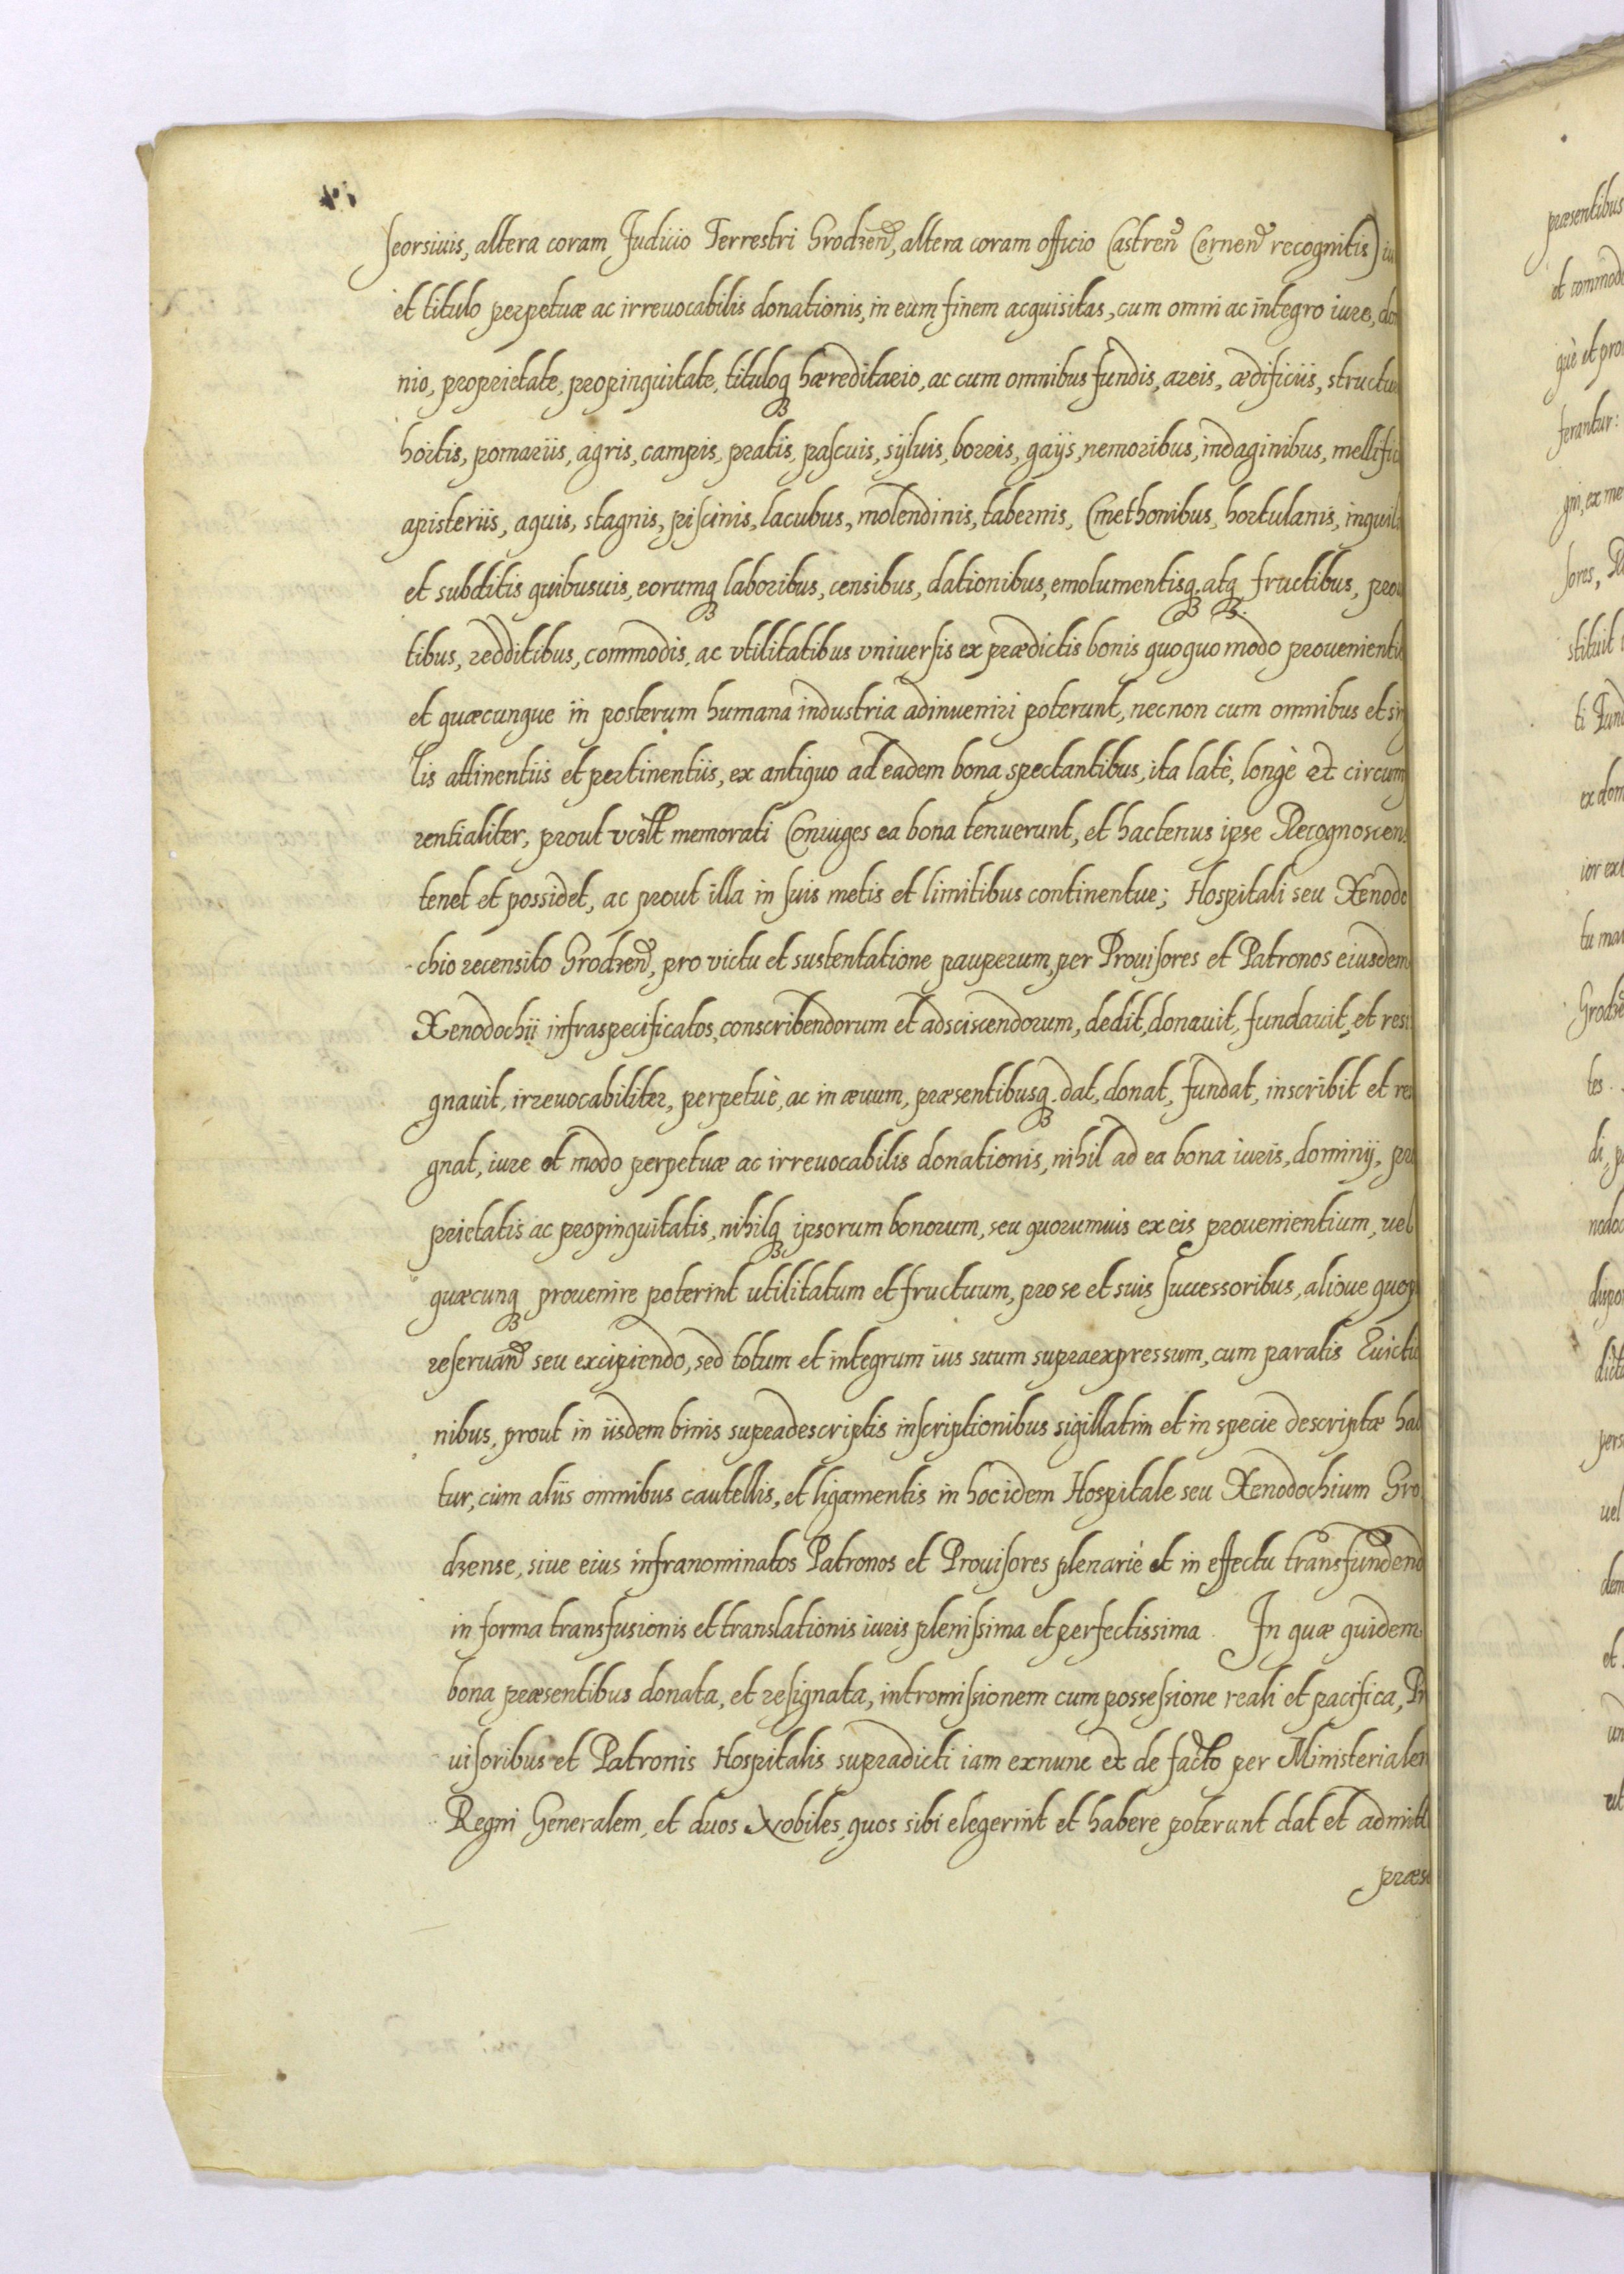 seorsiuis, altera coram Judicio Terrestri Grodzen̄, altera coram officio Castren̄ Cernen̄ recognitis) iu
et titulo perpetuæ ac irreuocabilis donationis, in eum finem acquisitas, cum omni ac integro iure, do
nio, proprietate, propinquitate, tituloq₃ hæreditario, ac cum omnibus fundis, areis, ædificiis, structu
hortis, pomariis, agris, campis, pratis, pascuis, syluis, borris, gays, nemoribus, indaginibus, mellific
apisteriis, aquis, stagnis, piscinis, lacubus, molendinis, tabernis, Cmethonibus, hortulanis, inquil
et subditis quibusuis, eorumq₃ laboribus, censibus, dationibus, emolumentisq₃. atq₃. fructibus, prou
tibus, redditibus, commodis, ac vtilitatibus vniuersis ex prædictis bonis quoquo modo prouenienti
et quæcunque in posterum humana industria adinueniri poterunt, necnon cum omnibus et sin
lis attinentiis et pertinentiis, ex antiquo ad eadem bona spectantibus, ita latè, longè et circum
rentialiter, prout memorati Coniuges ea bona tenuerunt, et hactenus ipse Recognoscens
tenet et possidet, ac prout illa in suis metis et limitibus continentur; Hospitali seu Xenodo
chio recensito Grodzen̄, pro victu et sustentatione pauperum, per Prouisores et Patronos eiusdem
Xenodochii infraspecificatos, conscribendorum et adsciscendorum, dedit, donauit, fundauit, et resi
gnauit, irreuocabiliter, perpetuè, ac in æuum, præsentibusq₃. dat, donat, fundat, inscribit et re
gnat, iure et modo perpetuæ ac irreuocabilis donationis, nihil ad ea bona iuris, dominij, pro
prietatis ac propinquitatis, nihilq₃ ipsorum bonorum, seu quorumuis ex eis prouenientium, vel
quæcunq₃ prouenire poterint utilitatum et fructuum, pro se et suis successoribus, alioue quop
reseruan̄ seu excipiendo, sed totum et integrum ius suum supraexpressum, cum paratis Euictio
nibus, prout in iisdem binis supradescriptis inscriptionibus sigillatim et in specie descriptæ hab
tur, cùm aliis omnibus cautellis, et ligamentis in hoc idem Hospitale seu Xenodochium Gro
dzense, siue eius infranominatos Patronos et Prouisores plenariè et in effectu transfundend
in forma transfusionis et translationis iuris plenissima et perfectissima. In quæ quidem
bona præsentibus donata, et resignata, intromissionem cum possessione reali et pacifica, Pr
uisoribus et Patronis Hospitalis supradicti iam exnunc et de facto per Ministerialem
Regni Generalem, et duos Nobiles, quos sibi elegerint et habere poterunt dat et admitt
præse